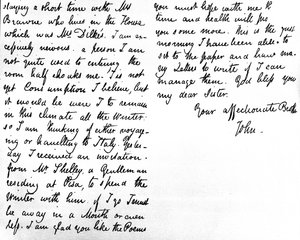 staying a short time with Mrs
Brawne who lives in the House
which was Mrs Dilke's. I am ex-
cessively nervous: a person I am
not quite used to entering the
room half chokes me. 'Tis not
yet Consumption I believe, but
it would be were I to remain
in this climate all the Winter:
so I am thinking of either voyag-
ing or travelling to Italy. Yester-
day I received an invitation
from Mr Shelley, a Gentleman
residing at Pisa, to spend the
Winter with him. if I go I must
be away in a Month or even
less. I am glad you like the Poems
you must hope with me that
time and health will produce
you some more. This is the first
morning I have been able to
sit to the paper and have many
Letters to write if I can
manage them. God bless you
my dear Sister.
Your affectionate Brother
John.